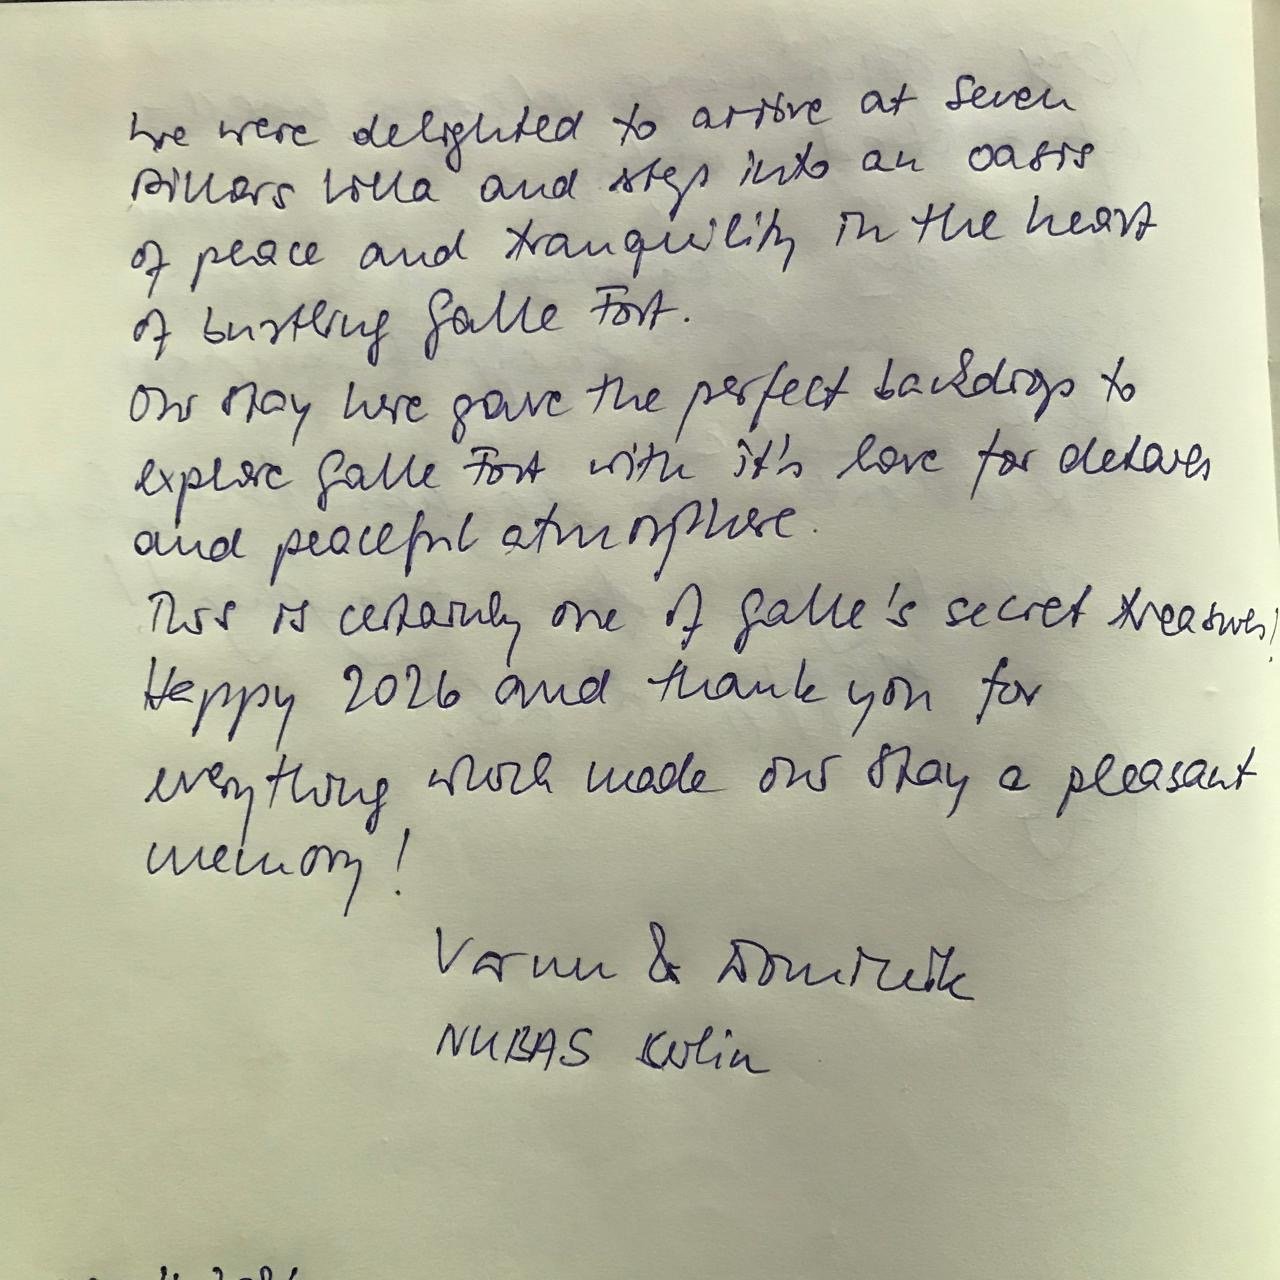 We were delighted to arrive at Seven
Pillars Villa and step into an oasis
of peace and tranquility in the heart
of bustling Galle Fort.
Our stay here gave the perfect backdrop to
explore Galle Fort with it's love for details
and peaceful atmosphere.
This is certainly one of Galle's secret treasures!
Happy 2026 and thank you for
everything which made our stay a pleasant
memory!
Varun & Dominik
NUBAS